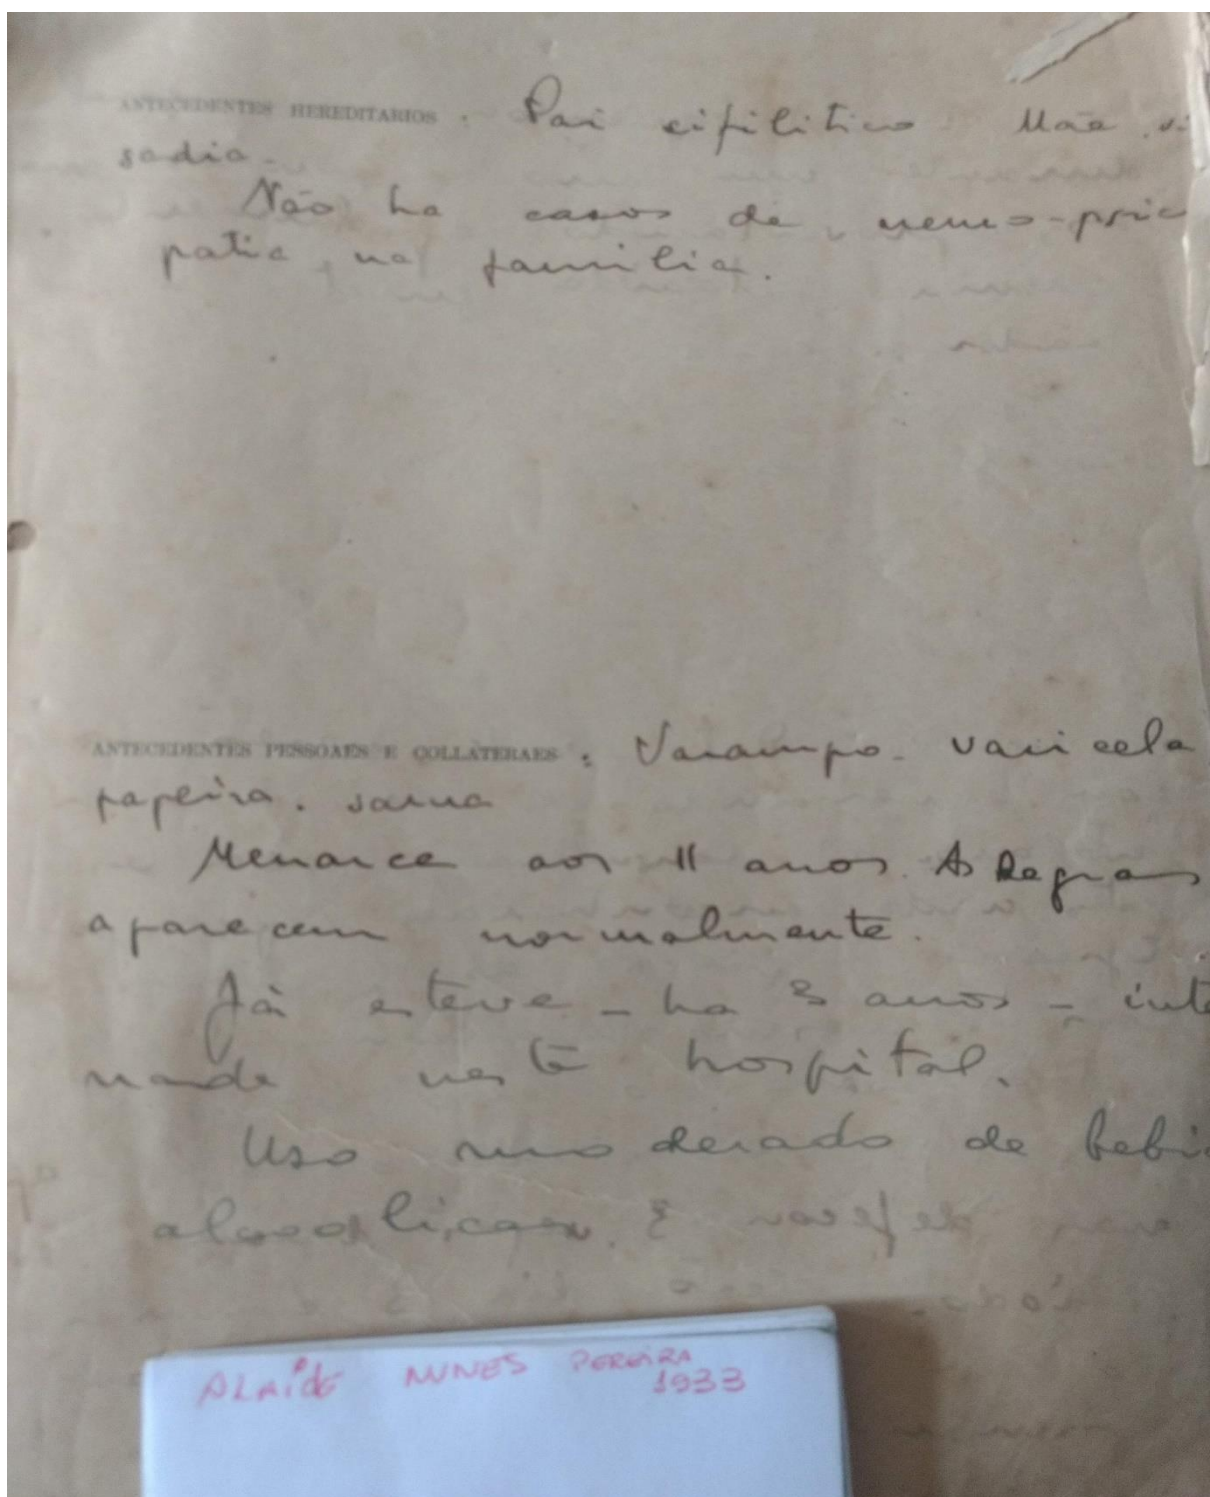 ANTECEDENTES HEREDITARIOS : Pai sifilitico Mãe vi
sadia.
Não ha casos de neuro-psic
patia na familia.
ANTECEDENTES PESSOAES E COLLATERAES : Sarampo. varicela
papeira. sarna
Menarca aos 11 anos. As Regras
aparecem normalmente.
Já esteve - ha 3 anos - inte
nada neste hospital.
Uso moderado de bebi
alcoolicas.
ALAÍDE NUNES PEREIRA
1933